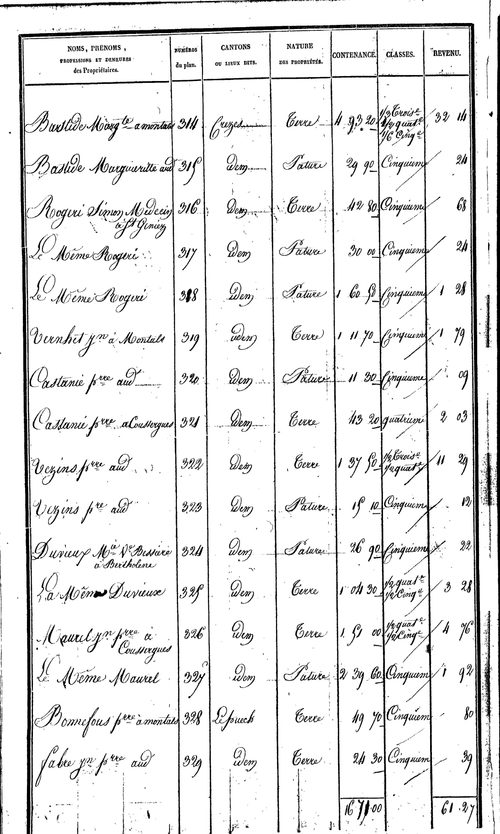 NOMS, PRÉNOMS, PROFESSIONS ET DEMEURES des Propriétaires. NUMÉROS du plan. CANTONS OU LIEUX DITS. NATURE DES PROPRIÉTÉS. CONTENANCE. CLASSES. REVENU.
Bastide Marg.te a montals 314 Crezes Terre 4 93 20 1/3 Trois.e 1/2 quat.e 1/6 Cinq.e 32 14
Bastide Marguerite aud 315 idem Pature 29 90 Cinquieme 24
Rogeri Simon Medecin à St Geniez 316 idem Terre 42 80 Cinquieme 68
Le Même Rogeri 317 idem Pature 30 00 Cinquieme 24
Le Même Rogeri 318 idem Pature 1 60 50 Cinquieme 1 28
Vernhet jn à Montals 319 idem Terre 1 11 70 Cinquieme 1 79
Castanié pre aud 320 idem Pature 11 30 Cinquieme 09
Castanié prre a Coussergues 321 idem Terre 43 20 quatrieme 2 03
Vezins prre aud 322 idem Terre 1 37 50 1/2 Trois.e 1/2 quat.e 11 29
Vezins pre aud 323 idem Pature 15 10 Cinquieme 12
Duvieux M.e Ve Bessiere à Bertholene 324 idem Pature 26 90 Cinquieme 22
La Même Duvieux 325 idem Terre 1 04 30 1/2 quat.e 1/2 Cinq.e 3 28
Maurel jn prre à Coussergues 326 idem Terre 1 51 00 1/2 quat.e 1/2 Cinq.e 4 76
Le Même Maurel 327 idem Pature 2 39 60 Cinquieme 1 92
Bonnefous prre a montals 328 Le puech Terre 49 70 Cinquieme 80
fabre jn prre aud 329 idem Terre 24 30 Cinquieme 39
16 71 00 61.27